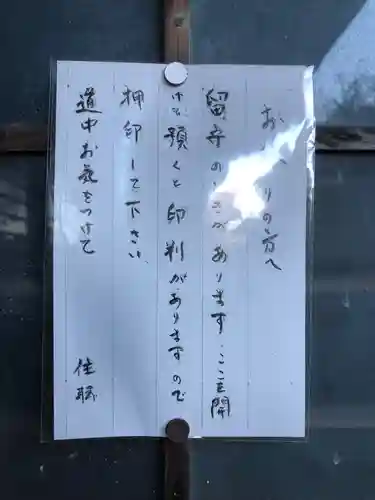 おまいりの方へ
留守のときがあります。ここを開
けて頂くと印判がありますので
押印して下さい。
道中お気をつけて
住職